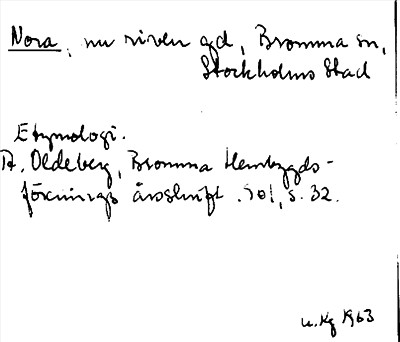 Nora, nu riven gd, Bromma sn,
Stockholms Stad
Etymologi.
A. Oldeberg, Bromma Hembygds-
förenings årsskrift 1961, s. 32.
u. Kg 1963